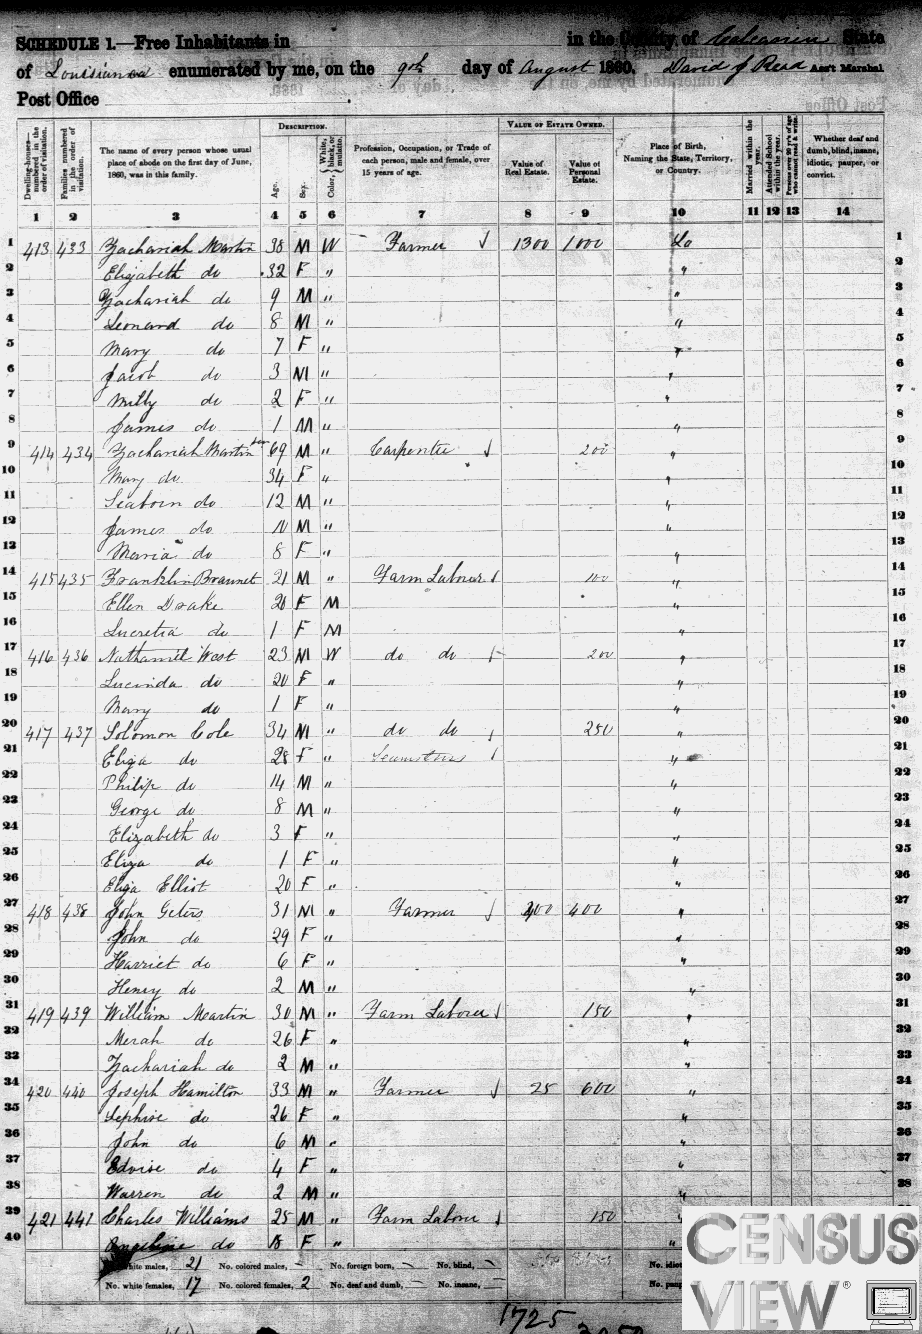 SCHEDULE 1.—Free Inhabitants in in the County of Calcasieu State
of Louisiana enumerated by me, on the 9th day of August 1860. David J Reid Ass't Marshal
Post Office
Dwelling-houses—numbered in the order of visitation.
Families numbered in the order of visitation.
The name of every person whose usual place of abode on the first day of June, 1860, was in this family.
DESCRIPTION.
Age.
Sex.
Color, White, black, or mulatto.
Profession, Occupation, or Trade of each person, male and female, over 15 years of age.
VALUE OF ESTATE OWNED.
Value of Real Estate.
Value of Personal Estate.
Place of Birth, Naming the State, Territory, or Country.
Married within the year.
Attended School within the year.
Persons over 20 y'rs of age who cannot read & write.
Whether deaf and dumb, blind, insane, idiotic, pauper, or convict.
1 2 3 4 5 6 7 8 9 10 11 12 13 14
1 413 433 Zachariah Martin 38 M W Farmer 1300 1000 La 1
2 Elizabeth do 32 F " " 2
3 Zachariah do 9 M " " 3
4 Leonard do 8 M " " 4
5 Mary do 7 F " " 5
6 Jacob do 3 M " " 6
7 Milly do 2 F " " 7
8 James do 1 M " " 8
9 414 434 Zachariah Martin Sen 69 M " Carpenter 200 " 9
10 Mary do 34 F " " 10
11 Seaborn do 12 M " " 11
12 James do M " " 12
13 Maria do 8 F " " 13
14 415 435 Franklin 21 M " Farm Laborer 100 " 14
15 Ellen Drake 20 F M " 15
16 Lucretia do 1 F M " 16
17 416 436 Nathaniel West 23 M W do do 200 " 17
18 Lucinda do 20 F " " 18
19 Mary do 1 F " " 19
20 417 437 Solomon Cole 34 M " do do 250 " 20
21 Eliza do 28 F " Seamstress " 21
22 Philip do 14 M " " 22
23 George do 8 M " " 23
24 Elizabeth do 3 F " " 24
25 Eliza do 1 F " " 25
26 Eliza Elliot 20 F " " 26
27 418 438 John Geters 31 M " Farmer 400 " 27
28 John do 29 F " " 28
29 Harriet do 6 F " " 29
30 Henry do 2 M " " 30
31 419 439 William Martin 30 M " Farm Laborer 150 " 31
32 Merah do 26 F " " 32
33 Zachariah do 2 M " " 33
34 420 440 Joseph Hamilton 33 M " Farmer 25 600 " 34
35 Sephise do 26 F " " 35
36 John do 6 M " " 36
37 Edvise do 4 F " " 37
38 Warren do 2 M " " 38
39 421 441 Charles Williams 25 M " Farm Labour 150 " 39
40 Angeline do 18 F " "
No. white males, 21 No. colored males, — No. foreign born, — No. blind, — No. idiotic
No. white females, 17 No. colored females, 2 No. deaf and dumb, — No. insane, — No. paupers
1725
CENSUS
VIEW ®